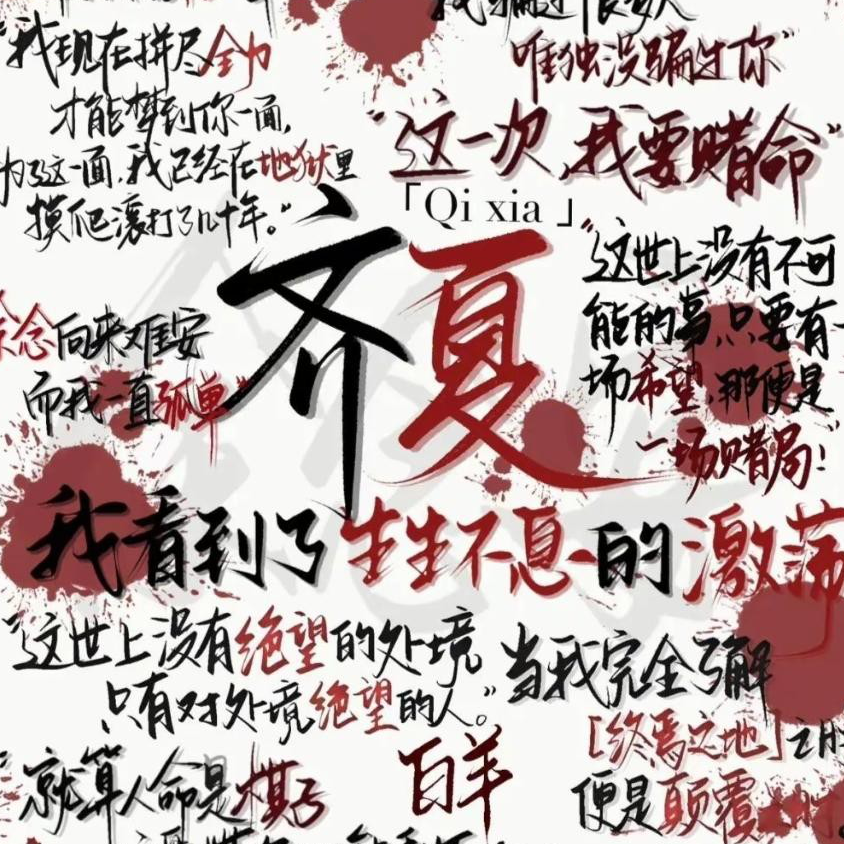 唯独没骗过你”
“我现在拼尽全力
才能梦到你一面,
为了这一面,我已经在地狱里
摸爬滚打了几十年。”
“这一次,我要赌命”
「Qi xia」
齐夏
“这世上没有不可
能的事,只要有一
场希望,那便是
一场赌局!”
余念向来难安
而我一直孤单”
我看到了生生不息的激荡
“这世上没有绝望的处境,
只有对处境绝望的人。”
当我完全了解
[终焉之地]之时
便是颠覆之时
“就算人命是棋子
百羊